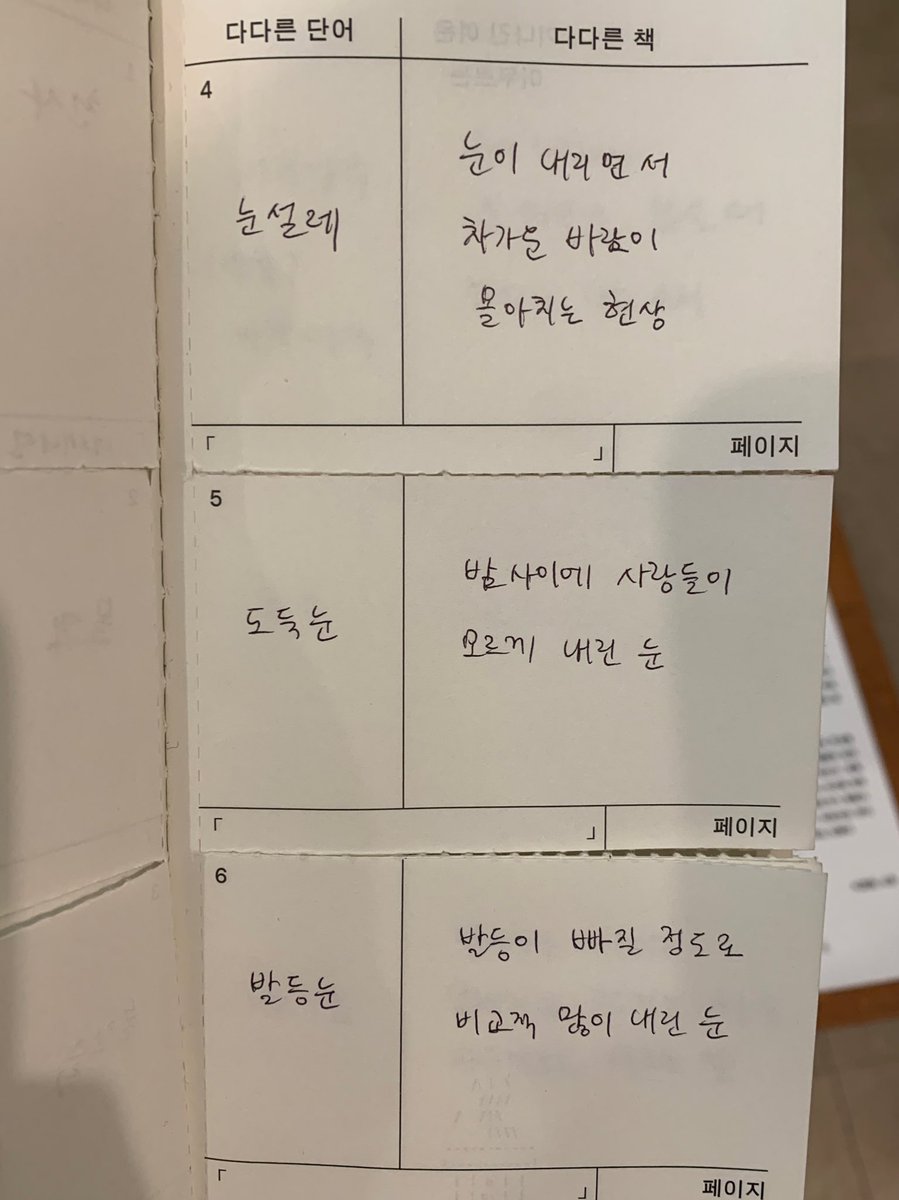 다다른 단어 다다른 책
4
눈설레
눈이 내리면서
차가운 바람이
몰아치는 현상
「 」 페이지
5
도둑눈
밤사이에 사람들이
모르게 내린 눈
「 」 페이지
6
발등눈
발등이 빠질 정도로
비교적 많이 내린 눈
「 」 페이지